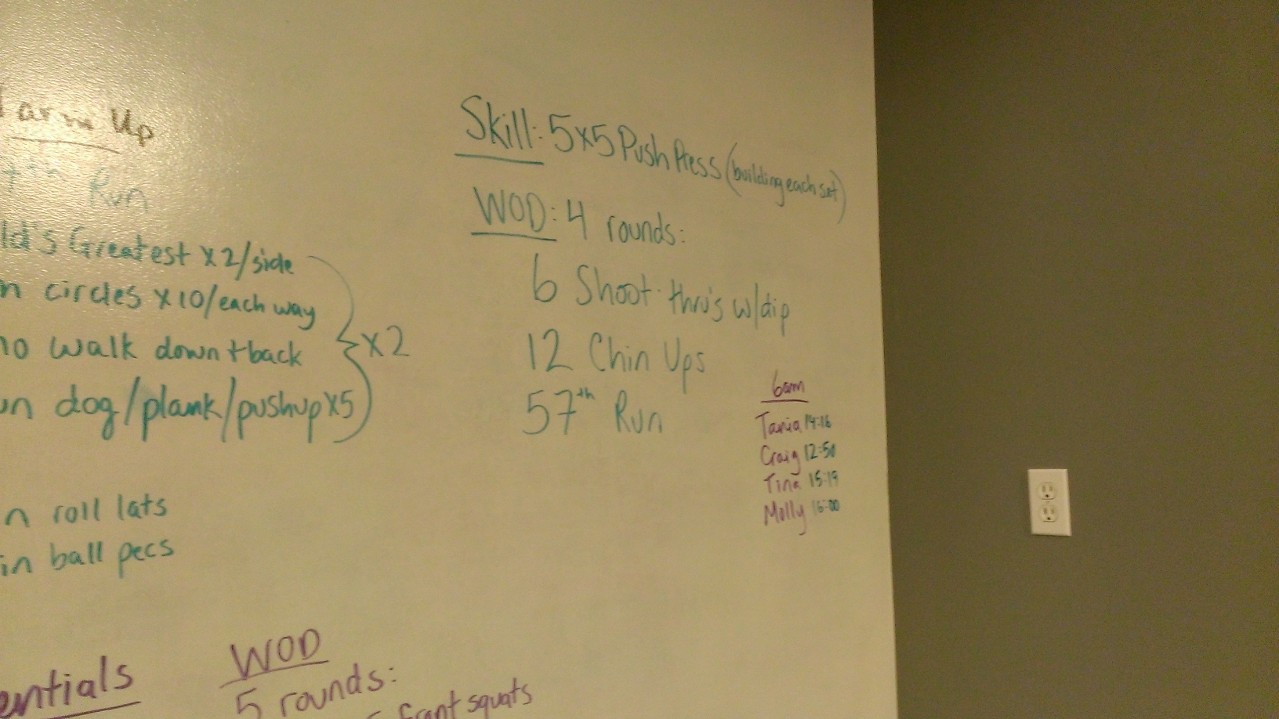 arm Up
th Run
ld's Greatest x2/side
n circles x10/each way
no walk down+back
x2
un dog/plank/pushup x5
n roll lats
in ball pecs
Skill: 5x5 Push Press (building each set)
WOD: 4 rounds:
6 Shoot-thru's w/dip
12 Chin Ups
57th Run
6am
Tania 14:16
Craig 12:50
Tina 15:19
Molly 16:00
entials
WOD
5 rounds:
front squats